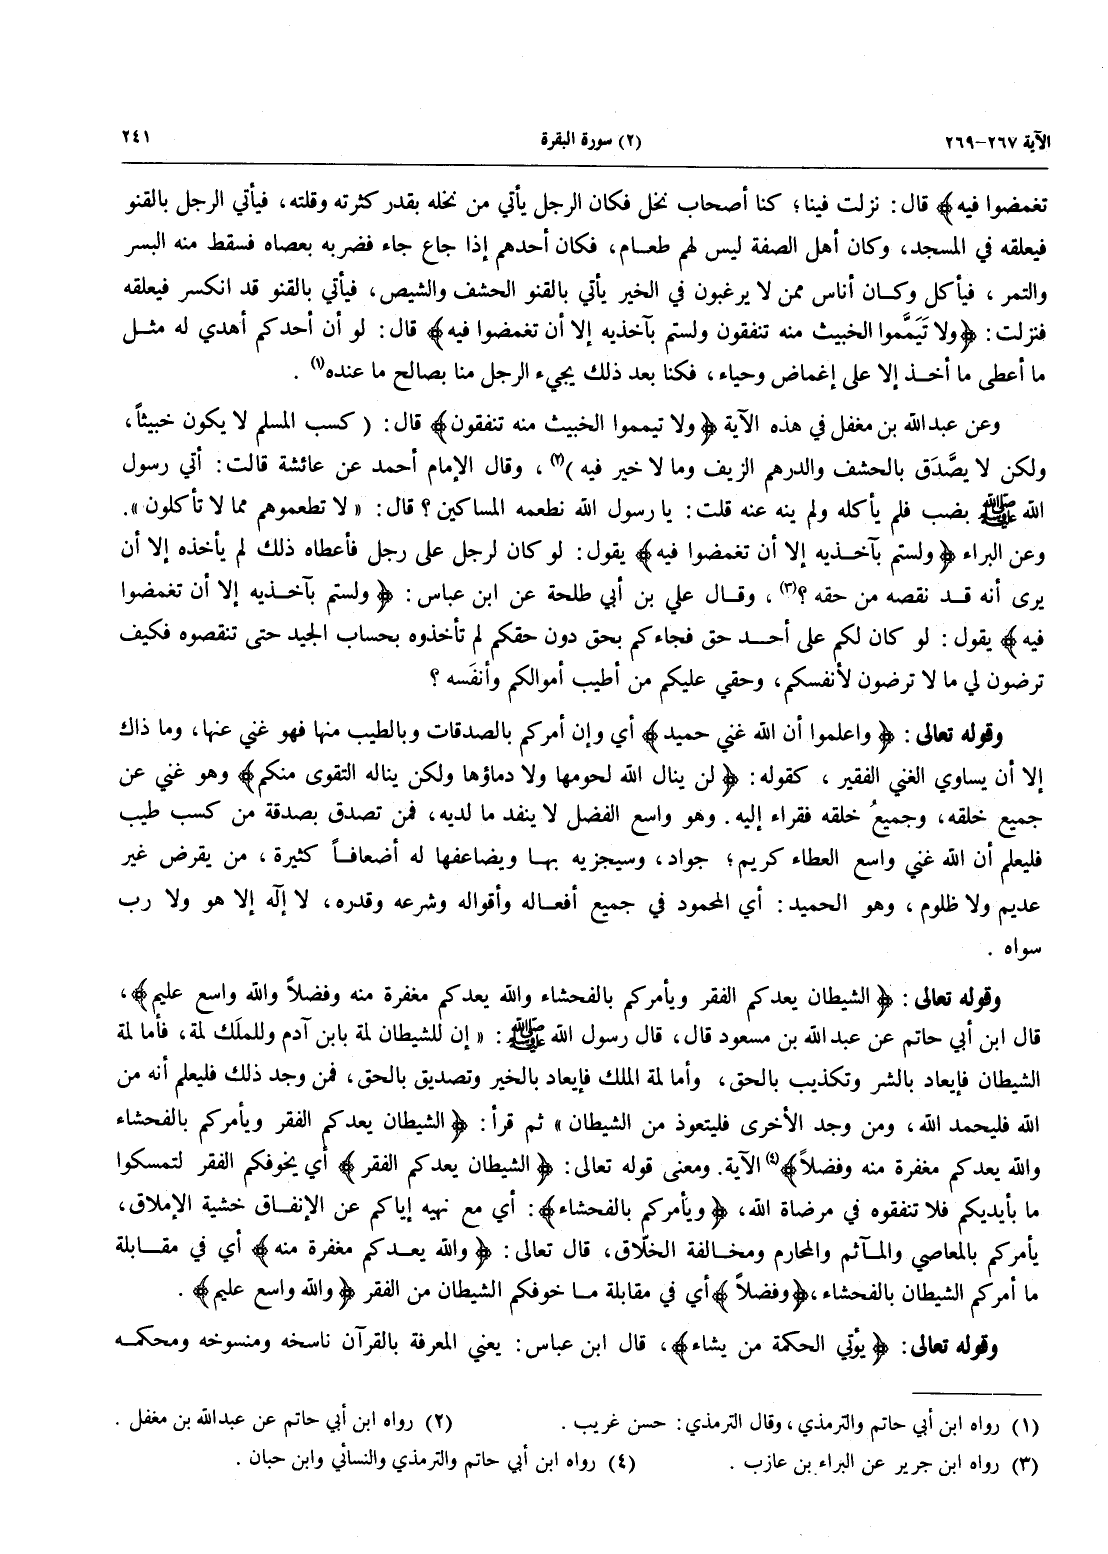 الآية ٢٦٧-٢٦٩ (٢) سورة البقرة ٢٤١
تغمضوا فيه﴾ قال: نزلت فينا؛ كنا أصحاب نخل فكان الرجل يأتي من نخله بقدر كثرته وقلته، فيأتي الرجل بالقنو
فيعلقه في المسجد، وكان أهل الصفة ليس لهم طعام، فكان أحدهم إذا جاع جاء فضربه بعصاه فسقط منه البسر
والتمر، فيأكل وكان أناس ممن لا يرغبون في الخير يأتي بالقنو الحشف والشيص، فيأتي بالقنو قد انكسر فيعلقه
فنزلت: ﴿ولا تَيَمَّموا الخبيث منه تنفقون ولستم بآخذيه إلا أن تغمضوا فيه﴾ قال: لو أن أحدكم أهدي له مثل
ما أعطى ما أخذ إلا على إغماض وحياء، فكنا بعد ذلك يجيء الرجل منا بصالح ما عنده(١).
وعن عبدالله بن مغفل في هذه الآية ﴿ولا تيمموا الخبيث منه تنفقون﴾ قال: (كسب المسلم لا يكون خبيثاً،
ولكن لا يصَّدَق بالحشف والدرهم الزيف وما لا خير فيه)(٢)، وقال الإمام أحمد عن عائشة قالت: أتي رسول
الله ﷺ بضب فلم يأكله ولم ينه عنه قلت: يا رسول الله نطعمه المساكين؟ قال: «لا تطعموهم مما لا تأكلون».
وعن البراء ﴿ولستم بآخذيه إلا أن تغمضوا فيه﴾ يقول: لو كان لرجل على رجل فأعطاه ذلك لم يأخذه إلا أن
يرى أنه قد نقصه من حقه؟(٣)، وقال علي بن أبي طلحة عن ابن عباس: ﴿ولستم بآخذيه إلا أن تغمضوا
فيه﴾ يقول: لو كان لكم على أحد حق فجاءكم بحق دون حقكم لم تأخذوه بحساب الجيد حتى تنقصوه فكيف
ترضون لي ما لا ترضون لأنفسكم، وحقي عليكم من أطيب أموالكم وأنفَسه؟
وقوله تعالى: ﴿واعلموا أن الله غني حميد﴾ أي وإن أمركم بالصدقات وبالطيب منها فهو غني عنها، وما ذاك
إلا أن يساوي الغني الفقير، كقوله: ﴿لن ينال الله لحومها ولا دماؤها ولكن يناله التقوى منكم﴾ وهو غني عن
جميع خلقه، وجميعُ خلقه فقراء إليه. وهو واسع الفضل لا ينفد ما لديه، فمن تصدق بصدقة من كسب طيب
فليعلم أن الله غني واسع العطاء كريم؛ جواد، وسيجزيه بها ويضاعفها له أضعافاً كثيرة، من يقرض غير
عديم ولا ظلوم، وهو الحميد: أي المحمود في جميع أفعاله وأقواله وشرعه وقدره، لا إلٓه إلا هو ولا رب
سواه.
وقوله تعالى: ﴿الشيطان يعدكم الفقر ويأمركم بالفحشاء والله يعدكم مغفرة منه وفضلاً والله واسع عليم﴾،
قال ابن أبي حاتم عن عبد الله بن مسعود قال، قال رسول الله ﷺ: «إن للشيطان لمة بابن آدم وللملَك لمة، فأما لمة
الشيطان فإيعاد بالشر وتكذيب بالحق، وأما لمة الملك فإيعاد بالخير وتصديق بالحق، فمن وجد ذلك فليعلم أنه من
الله فليحمد الله، ومن وجد الأخرى فليتعوذ من الشيطان» ثم قرأ: ﴿الشيطان يعدكم الفقر ويأمركم بالفحشاء
والله يعدكم مغفرة منه وفضلاً﴾(٤) الآية. ومعنى قوله تعالى: ﴿الشيطان يعدكم الفقر﴾ أي يخوفكم الفقر لتمسكوا
ما بأيديكم فلا تنفقوه في مرضاة الله، ﴿ويأمركم بالفحشاء﴾: أي مع نهيه إياكم عن الإنفاق خشية الإملاق،
يأمركم بالمعاصي والمآثم والمحارم ومخالفة الخلّاق، قال تعالى: ﴿والله يعدكم مغفرة منه﴾ أي في مقابلة
ما أمركم الشيطان بالفحشاء، ﴿وفضلاً﴾ أي في مقابلة ما خوفكم الشيطان من الفقر ﴿والله واسع عليم﴾.
وقوله تعالى: ﴿يؤتي الحكمة من يشاء﴾، قال ابن عباس: يعني المعرفة بالقرآن ناسخه ومنسوخه ومحكمه
(١) رواه ابن أبي حاتم والترمذي، وقال الترمذي: حسن غريب. (٢) رواه ابن أبي حاتم عن عبدالله بن مغفل.
(٣) رواه ابن جرير عن البراء بن عازب. (٤) رواه ابن أبي حاتم والترمذي والنسائي وابن حبان.